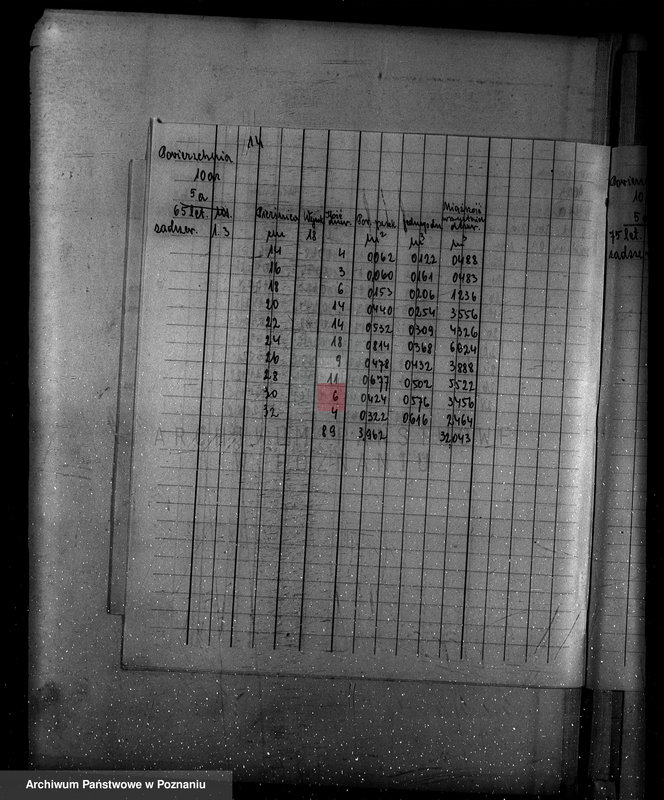 14
Powierzchnia
10 ar
5 a
65 let.
sadzew. 1.3
Pierśnica Wysok Ilość drzew. Pow. przek. jednego dn Miąższość wszystkich drzew.
18 m² m³ m³
14 4 0062 0122 0488
16 3 0,060 0161 0483
18 6 0,153 0206 1236
20 14 0,440 0254 3,556
22 14 0,532 0309 4326
24 18 0,814 0368 6624
26 9 0,478 0432 3,888
28 11 0,677 0,502 5,522
30 6 0,424 0,576 3,456
32 4 0,322 0,616 2,464
89 3,962 32,043
ARCHIWUM PAŃSTWOWE
W POZNANIU
Powierz
10
5 a
75 let.
sadzew
Archiwum Państwowe w Poznaniu